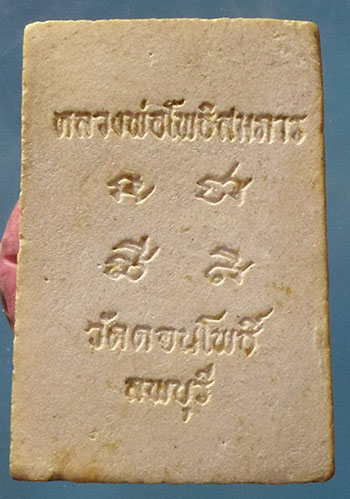 หลวงพ่อโพธิสมภาร
วัดดอนโพธิ์
ลพบุรี